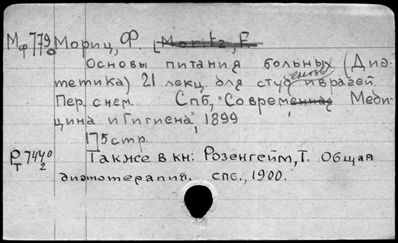 Мф 7790 Мориц, Ф. [Moritz, F.
Основы питания больных (Диэ-
тетика) 21 лекц. для студентов и врачей.
Пер. с нем. Спб, "Современная Меди-
цина и Гигиена", 1899
175 стр.
Рт 7440/2 Также в кн: Розенгейм, Т. Общая
диэтотерапия. спб., 1900.